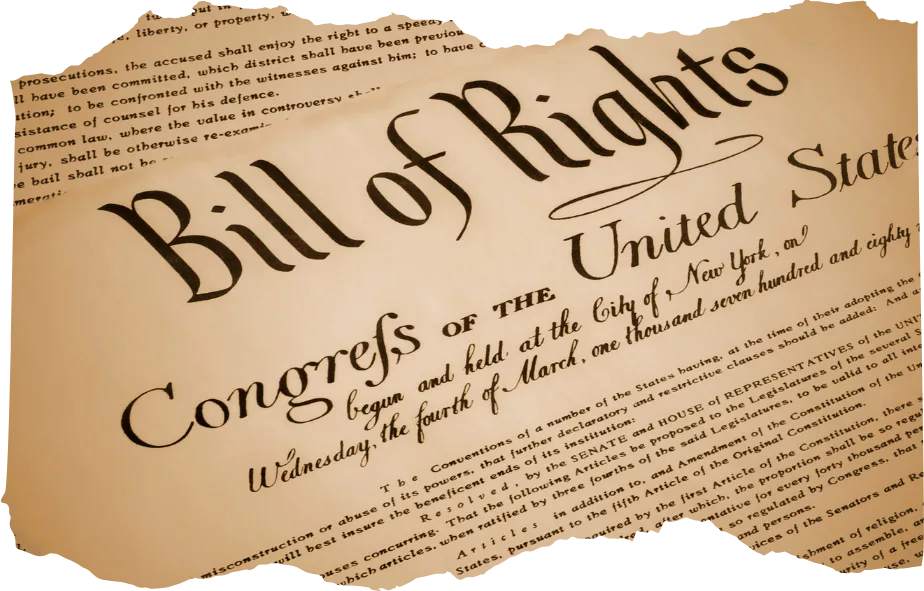 liberty, or property,
prosecutions, the accused shall enjoy the right to a speedy
have been committed, which district shall have been
to be confronted with the witnesses against him; to have
of counsel for his defence.
common law, where the value in controversy
jury, shall be otherwise
bail shall not be
Bill of Rights
Congreſs OF THE United States
begun and held at the City of New York, on
Wednesday, the fourth of March, one thousand seven hundred and eighty
The Conventions of a number of the States having, at the time of their adopting the
misconstruction or abuse of its powers, that further declaratory and restrictive clauses should be added: And
will best insure the beneficent ends of its institution:
Resolved, by the SENATE and HOUSE of REPRESENTATIVES of the
concurring. That the following Articles be proposed to the Legislatures of the several
which articles, when ratified by three fourths of the said Legislatures, to be valid to all
Articles in addition to, and Amendment of the Constitution of the
States, pursuant to the fifth Article of the Original Constitution.
by the first Article of the Constitution, there
which, the proportion shall be so
for every forty thousand
so regulated by Congress, that
and persons.
of the Senators and
of religion,
to assemble,
of a free